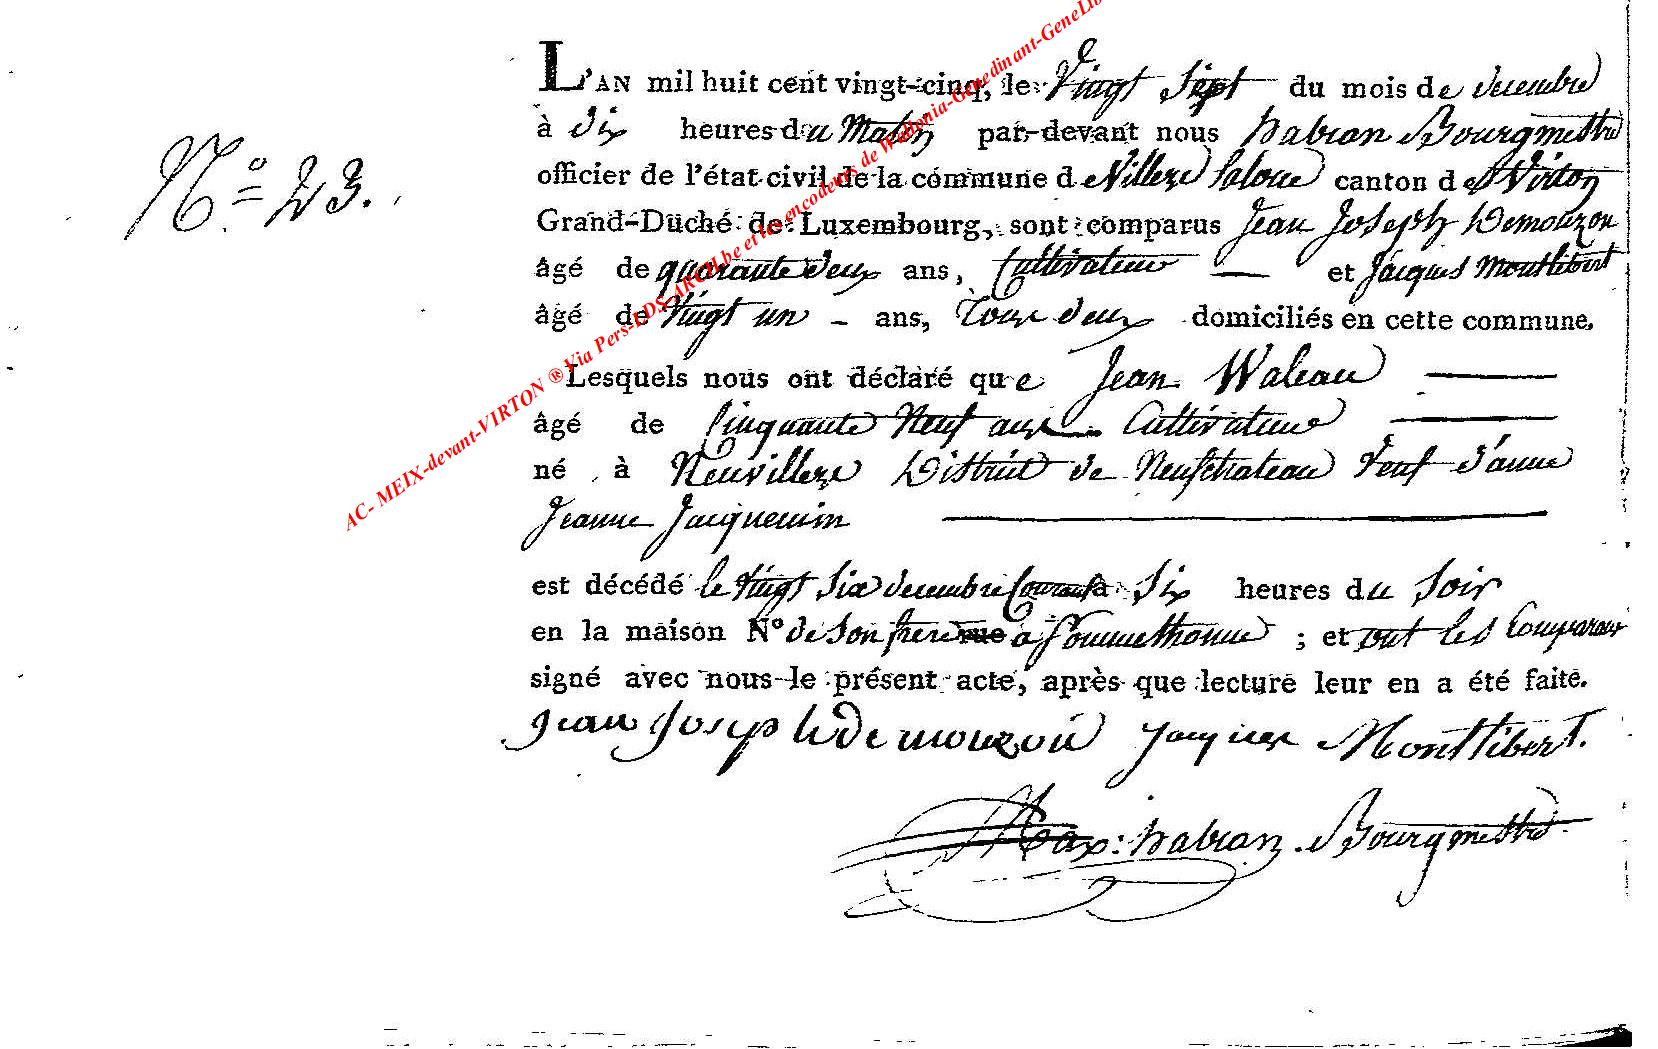 N.º 23.
L'AN mil huit cent vingt-cinq, le Vingt Sept du mois de decembre
à dix heures du Matin par-devant nous habran Bourgmestre
officier de l'état civil de la commune de Villers laloue canton de Virton
Grand-Duché de Luxembourg, sont comparus Jean Joseph Demouzon
âgé de quarante deux ans, Cultivateur et Jacques Montlibert
âgé de Vingt un - ans, tous deux domiciliés en cette commune.
Lesquels nous ont déclaré que Jean Waleau
âgé de Cinquante Neuf ans Cultivateur
né à Neuvillers District de Neufchateau Veuf d'anne
Jeanne Jacquemin
est décédé le Vingt Six decembre Courant à Six heures du Soir
en la maison Nº de Son frere rue à Sommethonne ; et ont les Comparans
signé avec nous le présent acte, après que lecture leur en a été faite.
Jean Joseph Demouzon Jacques Montlibert.
Max: habran. Bourgmestre
AC- MEIX-devant-VIRTON ® Via Pers-LDS-ARCH.be et les encodeurs de Wallonia-Genedinant-GeneLib